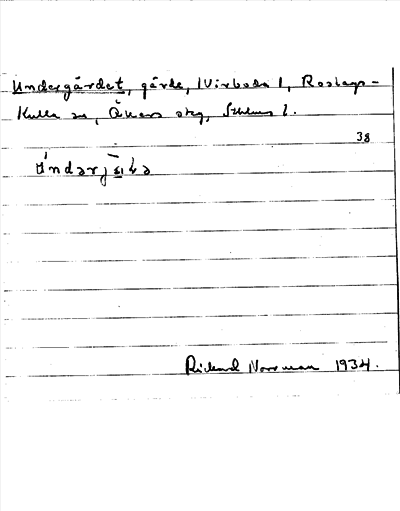 Undergärdet, gärde, Norrboda 1, Roslags-
Kulla sn, Åkers skg, Sthlms l.
38
Richard Norrman 1934.